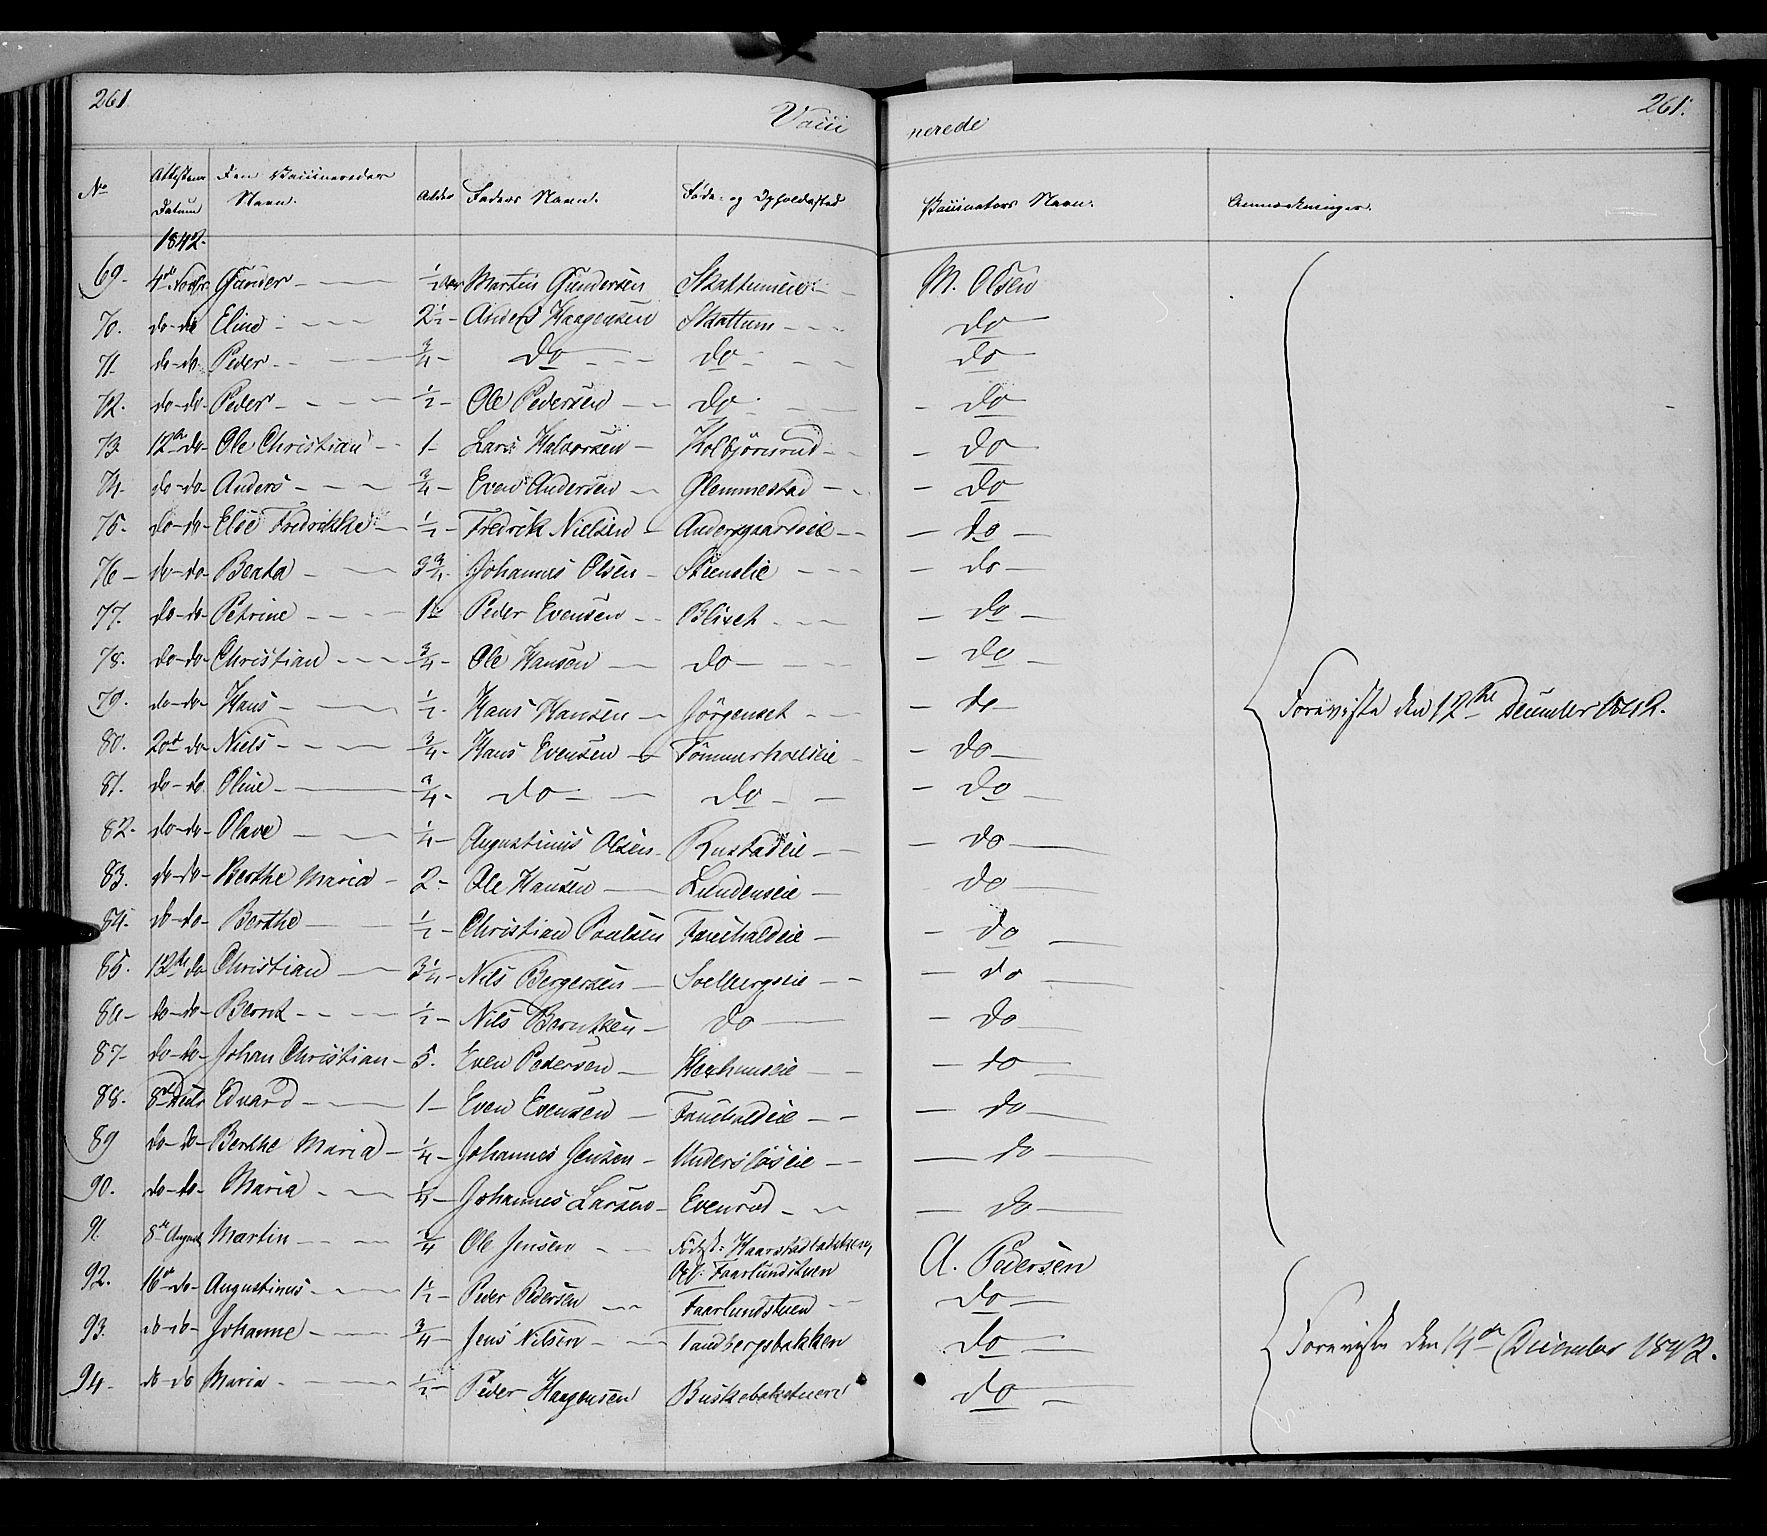 261. Vacci nerede 261.
No Attestens Datum Den Vaccineredes Navn. Alder Faders Navn. Føde- og Opholdssted Vaccinators Navn. Anmærkninger.
1842.
69. 4de Novbr Gunder 1/2 Aar Martin Gundersen Skattumeie M. Olsen
70. do-do Eline 2 1/2 - Anders Haagensen Skattum do
71. do-do Peder 3/4 - do do do
72. do-do Peder 1/2 - Ole Pedersen do do
73. 12te do Ole Christian 1 - Lars Halvorsen Kolbjörnrud do
74. do-do Anders 3/4 - Even Andersen Glemmestad do
75. do-do Else Fredrikke 1/2 - Fredrik Nielsen Andersgaardseie do
76 do-do Beata 3 3/4 - Johannes Olsen Steenslie do
77. do-do Petrine Peder Evensen Blixet do
78. do-do Christian 3/4 - Ole Hansen do do
79. do-do Hans 1/2 - Hans Hansen Jörgenset do
Foreviste den 12te December 1842.
80. 20de do Niels 3/4 - Hans Evensen do
81. do-do Oline 3/4 - do do do
82. do-do Olave 1/4 - Augustinus Olsen Rustadeie do
83. do-do Berthe Maria 2 - Ole Hansen Lundenseie do
84. do-do Berthe 1/2 - Christian Poulsen do
85. 12te do Christian 3 1/4 - Nils Bergersen Soelbergseie do
86 do-do Bernt 1/2 - Nils Berntsen do do
87. do-do Johan Christian 5. Even Pedersen do
88. 8de Decbr Edvard 1 - Even Evensen do
89 do-do Berthe Maria 1/4 - Johannes Jensen do
90. do-do Maria 1/4 - Johannes Larsen Evenrud do
91. 8de August Martin 3/4 Ole Jensen Födest: A. Pedersen
Faarlundstuen
92. 16de do Augustinus 1 1/2 - Peder Pedersen Faarlundstuen do
93. do-do Johanne 3/4 - Jens Nilsen Sandbergsbakken do
Foreviste den 14de December 1842.
94. do-do Maria 1/2 - Peder Haagensen do